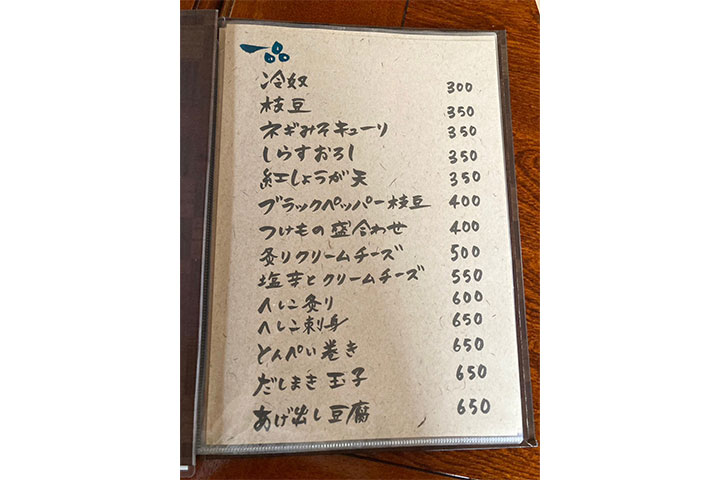 一品
冷奴 300
枝豆 350
ネギみそキューリ 350
しらすおろし 350
紅しょうが天 350
ブラックペッパー枝豆 400
つけもの盛合わせ 400
炙りクリームチーズ 500
塩辛とクリームチーズ 550
へしこ炙り 600
へしこ刺身 650
とんぺい巻き 650
だしまき玉子 650
あげ出し豆腐 650